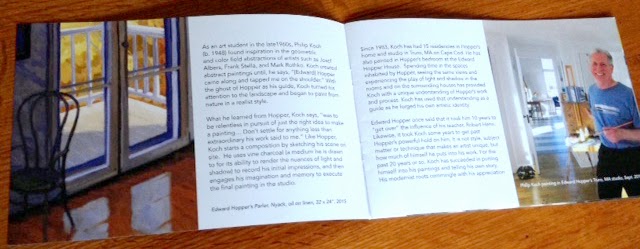 As an art student in the late1960s, Philip Koch
(b. 1948) found inspiration in the geometric
and color field abstractions of artists such as Josef
Albers, Frank Stella, and Mark Rothko. Koch created
abstract paintings until, he says, "[Edward] Hopper
came along and tapped me on the shoulder." With
the ghost of Hopper as his guide, Koch turned his
attention to the landscape and began to paint from
nature in a realist style.
What he learned from Hopper, Koch says, "was to
be relentless in pursuit of just the right idea to make
a painting... Don't settle for anything less than
extraordinary his work said to me." Like Hopper,
Koch starts a composition by sketching his scene on
site. He uses vine charcoal (a medium he is drawn
to for its ability to render the nuances of light and
shadow) to record his initial impressions, and then
engages his imagination and memory to execute
the final painting in the studio.
Edward Hopper's Parlor, Nyack, oil on linen, 32 x 24", 2015
Since 1983, Koch has had 15 residencies in Hopper's
home and studio in Truro, MA on Cape Cod. He has
also painted in Hopper's bedroom at the Edward
Hopper House. Spending time in the spaces
inhabited by Hopper, seeing the same views and
experiencing the play of light and shadow in the
rooms and on the surrounding houses has provided
Koch with a unique understanding of Hopper's work
and process. Koch has used that understanding as a
guide as he forged his own artistic identity.
Edward Hopper once said that it took him 10 years to
"get over" the influence of his teacher, Robert Henri.
Likewise, it took Koch some years to get past
Hopper's powerful hold on him. It is not style, subject
matter or technique that makes an artist unique, but
how much of himself he puts into his work. For the
past 20 years or so, Koch has succeeded in putting
himself into his paintings and telling his own story.
His modernist roots commingle with his appreciation
Philip Koch painting in Edward Hopper's Truro, MA studio, Sept.